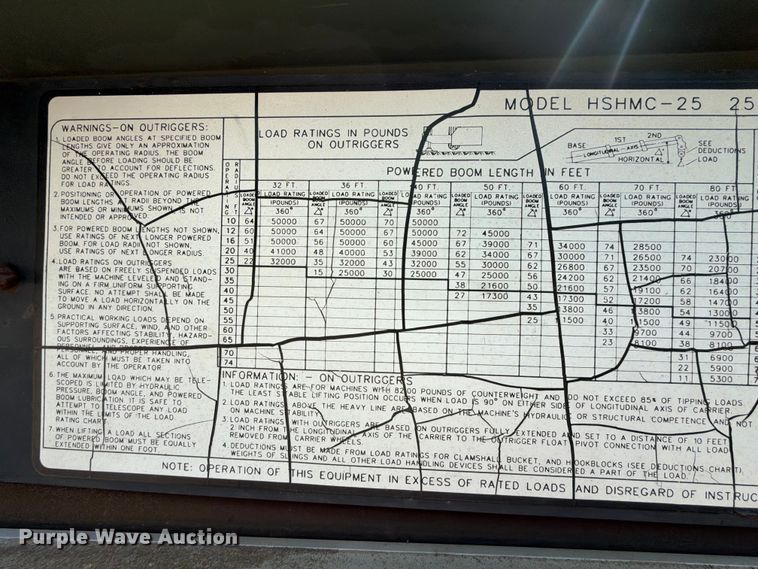 MODEL HSHMC-25 25
WARNINGS-ON OUTRIGGERS:
1. LOADED BOOM ANGLES AT SPECIFIED BOOM
LENGTHS GIVE ONLY AN APPROXIMATION
OF THE OPERATING RADIUS. THE BOOM
ANGLE BEFORE LOADING SHOULD BE
GREATER TO ACCOUNT FOR DEFLECTIONS.
DO NOT EXCEED THE OPERATING RADIUS
FOR LOAD RATINGS.
2. POSITIONING OR OPERATION OF POWERED
BOOM LENGTHS AT RADII BEYOND THE
MAXIMUM OR MINIMUMS SHOWN, IS NOT
INTENDED OR APPROVED.
3. FOR POWERED BOOM LENGTHS NOT SHOWN,
USE RATINGS OF NEXT LONGER POWERED
BOOM. FOR LOAD RADII NOT SHOWN,
USE RATINGS OF NEXT LONGER RADIUS.
4. LOAD RATINGS ON OUTRIGGERS
ARE BASED ON FREELY SUSPENDED LOADS
WITH THE MACHINE LEVELED AND STAND-
ING ON A FIRM, UNIFORM SUPPORTING
SURFACE. NO ATTEMPT SHALL BE MADE
TO MOVE A LOAD HORIZONTALLY ON THE
GROUND IN ANY DIRECTION.
5. PRACTICAL WORKING LOADS DEPEND ON
SUPPORTING SURFACE, WIND, AND OTHER
FACTORS AFFECTING STABILITY, HAZARD-
OUS SURROUNDINGS, EXPERIENCE OF
PERSONNEL, AND PROPER HANDLING,
ALL OF WHICH MUST BE TAKEN INTO
ACCOUNT BY THE OPERATOR.
6. THE MAXIMUM LOAD WHICH MAY BE TELE-
SCOPED IS LIMITED BY HYDRAULIC
PRESSURE, BOOM ANGLE, AND POWERED
BOOM LUBRICATION. IT IS SAFE TO
ATTEMPT TO TELESCOPE ANY LOAD
WITHIN THE LIMITS OF THE LOAD
RATING CHART.
7. WHEN LIFTING A LOAD ALL SECTIONS
OF POWERED BOOM MUST BE EQUALLY
EXTENDED WITHIN ONE FOOT.
LOAD RATINGS IN POUNDS
ON OUTRIGGERS
BASE 1ST 2ND
LONGITUDINAL-AXIS
HORIZONTAL
SEE
DEDUCTIONS
LOAD
POWERED BOOM LENGTH IN FEET
OPERATING RADIUS
32 FT. 36 FT. 40 FT. 50 FT. 60 FT. 70 FT. 80 FT.
LOADED BOOM ANGLE LOAD RATING (POUNDS) 360°
10 64 50000 67 50000 70 50000
12 60 50000 64 50000 67 50000 72 45000
16 51 50000 56 50000 60 50000 67 39000 71 34000 74 28500
20 40 41000 48 40000 53 39000 62 34000 67 30000 71 26500 74 23000
25 22 32000 35 32000 43 32000 55 30000 62 26800 67 23500 70 20700
30 15 25000 30 25000 47 25000 56 24200 62 21400 66 18400
35 38 21600 50 21600 57 19100 62 16400
40 27 17300 43 17300 52 17200 58 14700
45 35 13800 46 13800 54 13000
50 25 11500 40 11500 49 11500
55 33 9700 44 9700
60 23 8100 38 8100
65 31 6900
70 22 5900
74 11 5300
INFORMATION: - ON OUTRIGGERS
1. LOAD RATINGS ARE FOR MACHINES WITH 8200 POUNDS OF COUNTERWEIGHT AND DO NOT EXCEED 85% OF TIPPING LOADS.
THE LEAST STABLE LIFTING POSITION OCCURS WHEN LOAD IS 90° ON EITHER SIDE OF LONGITUDINAL AXIS OF CARRIER.
2. LOAD RATINGS ABOVE THE HEAVY LINE ARE BASED ON THE MACHINE'S HYDRAULIC OR STRUCTURAL COMPETENCE AND NOT
ON MACHINE STABILITY.
3. LOAD RATINGS WITH OUTRIGGERS ARE BASED ON OUTRIGGERS FULLY EXTENDED AND SET TO A DISTANCE OF 10 FEET
2 INCH FROM THE LONGITUDINAL AXIS OF THE CARRIER TO THE OUTRIGGER FLOAT PIVOT CONNECTION WITH ALL LOAD
REMOVED FROM CARRIER WHEELS.
4. DEDUCTIONS MUST BE MADE FROM LOAD RATINGS FOR CLAMSHALL BUCKET, AND HOOKBLOCKS (SEE DEDUCTIONS CHART).
WEIGHTS OF SLINGS AND ALL OTHER LOAD HANDLING DEVICES SHALL BE CONSIDERED A PART OF THE LOAD.
NOTE: OPERATION OF THIS EQUIPMENT IN EXCESS OF RATED LOADS AND DISREGARD OF INSTRUC
Purple Wave Auction